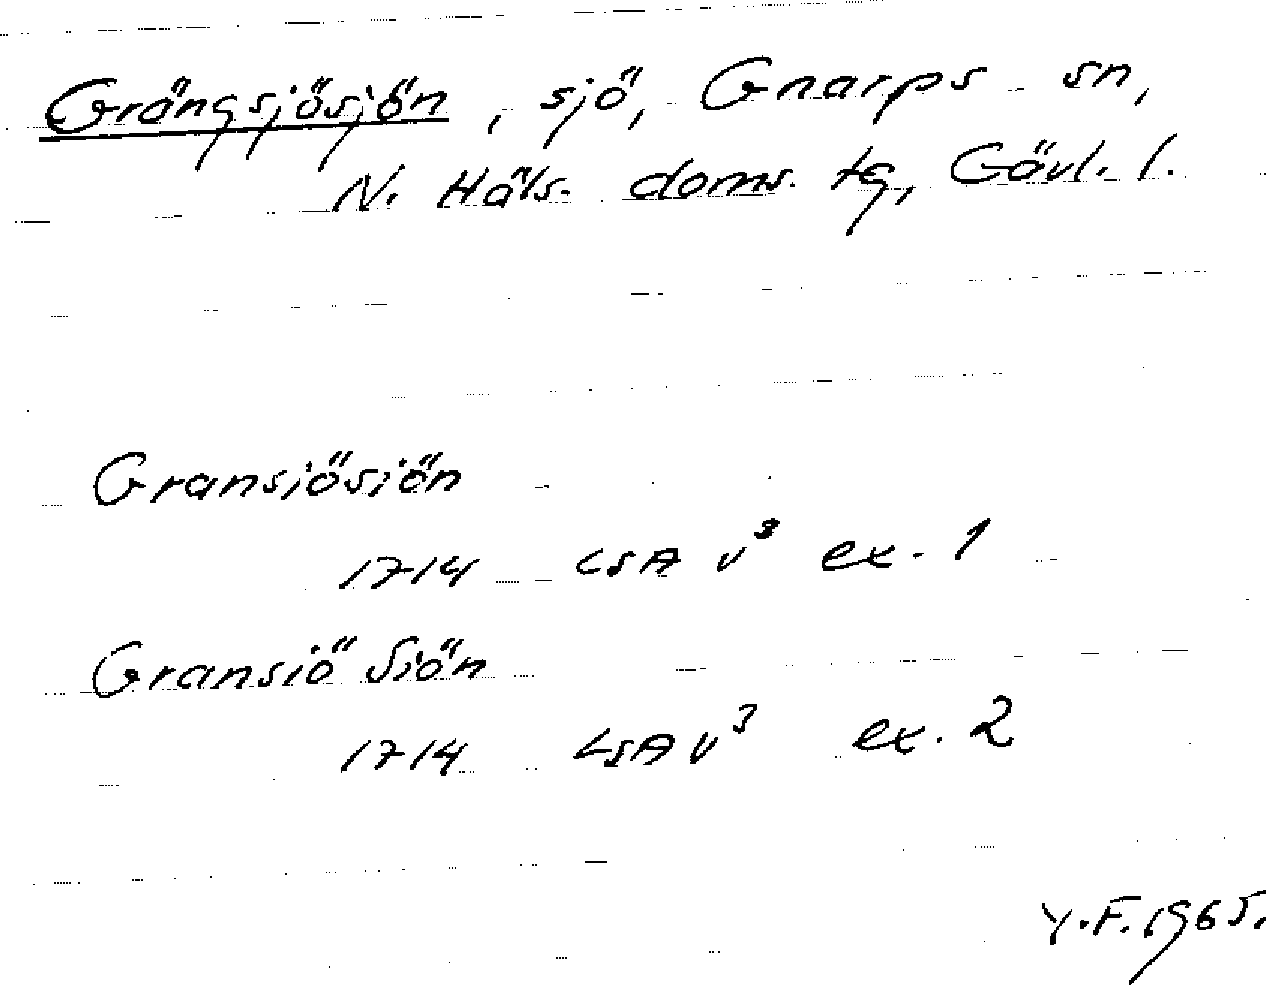 Grängsjösjön, sjö, Gnarps sn,
N. Häls. doms. tg, Gävl. l.
Gransiösiön
1714 LSA v³ ex. 1
Gransiö Siön
1714 LSA v³ ex. 2
Y.F. 1965.